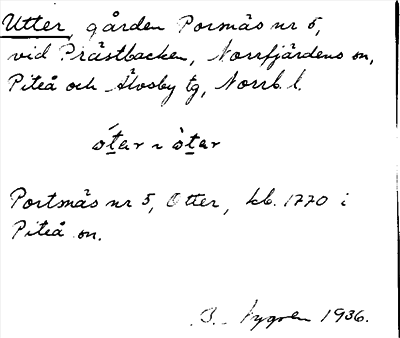 Utter, gården Porsnäs nr 5,
vid Prästbacken, Norrfjärdens sn,
Piteå och Älvsby tg, Norrb. l.
ó̀tar ~ ò̀tar
Portsnäs nr 5, Otter, kb. 1770 i
Piteå sn.
B. Nygren 1936.